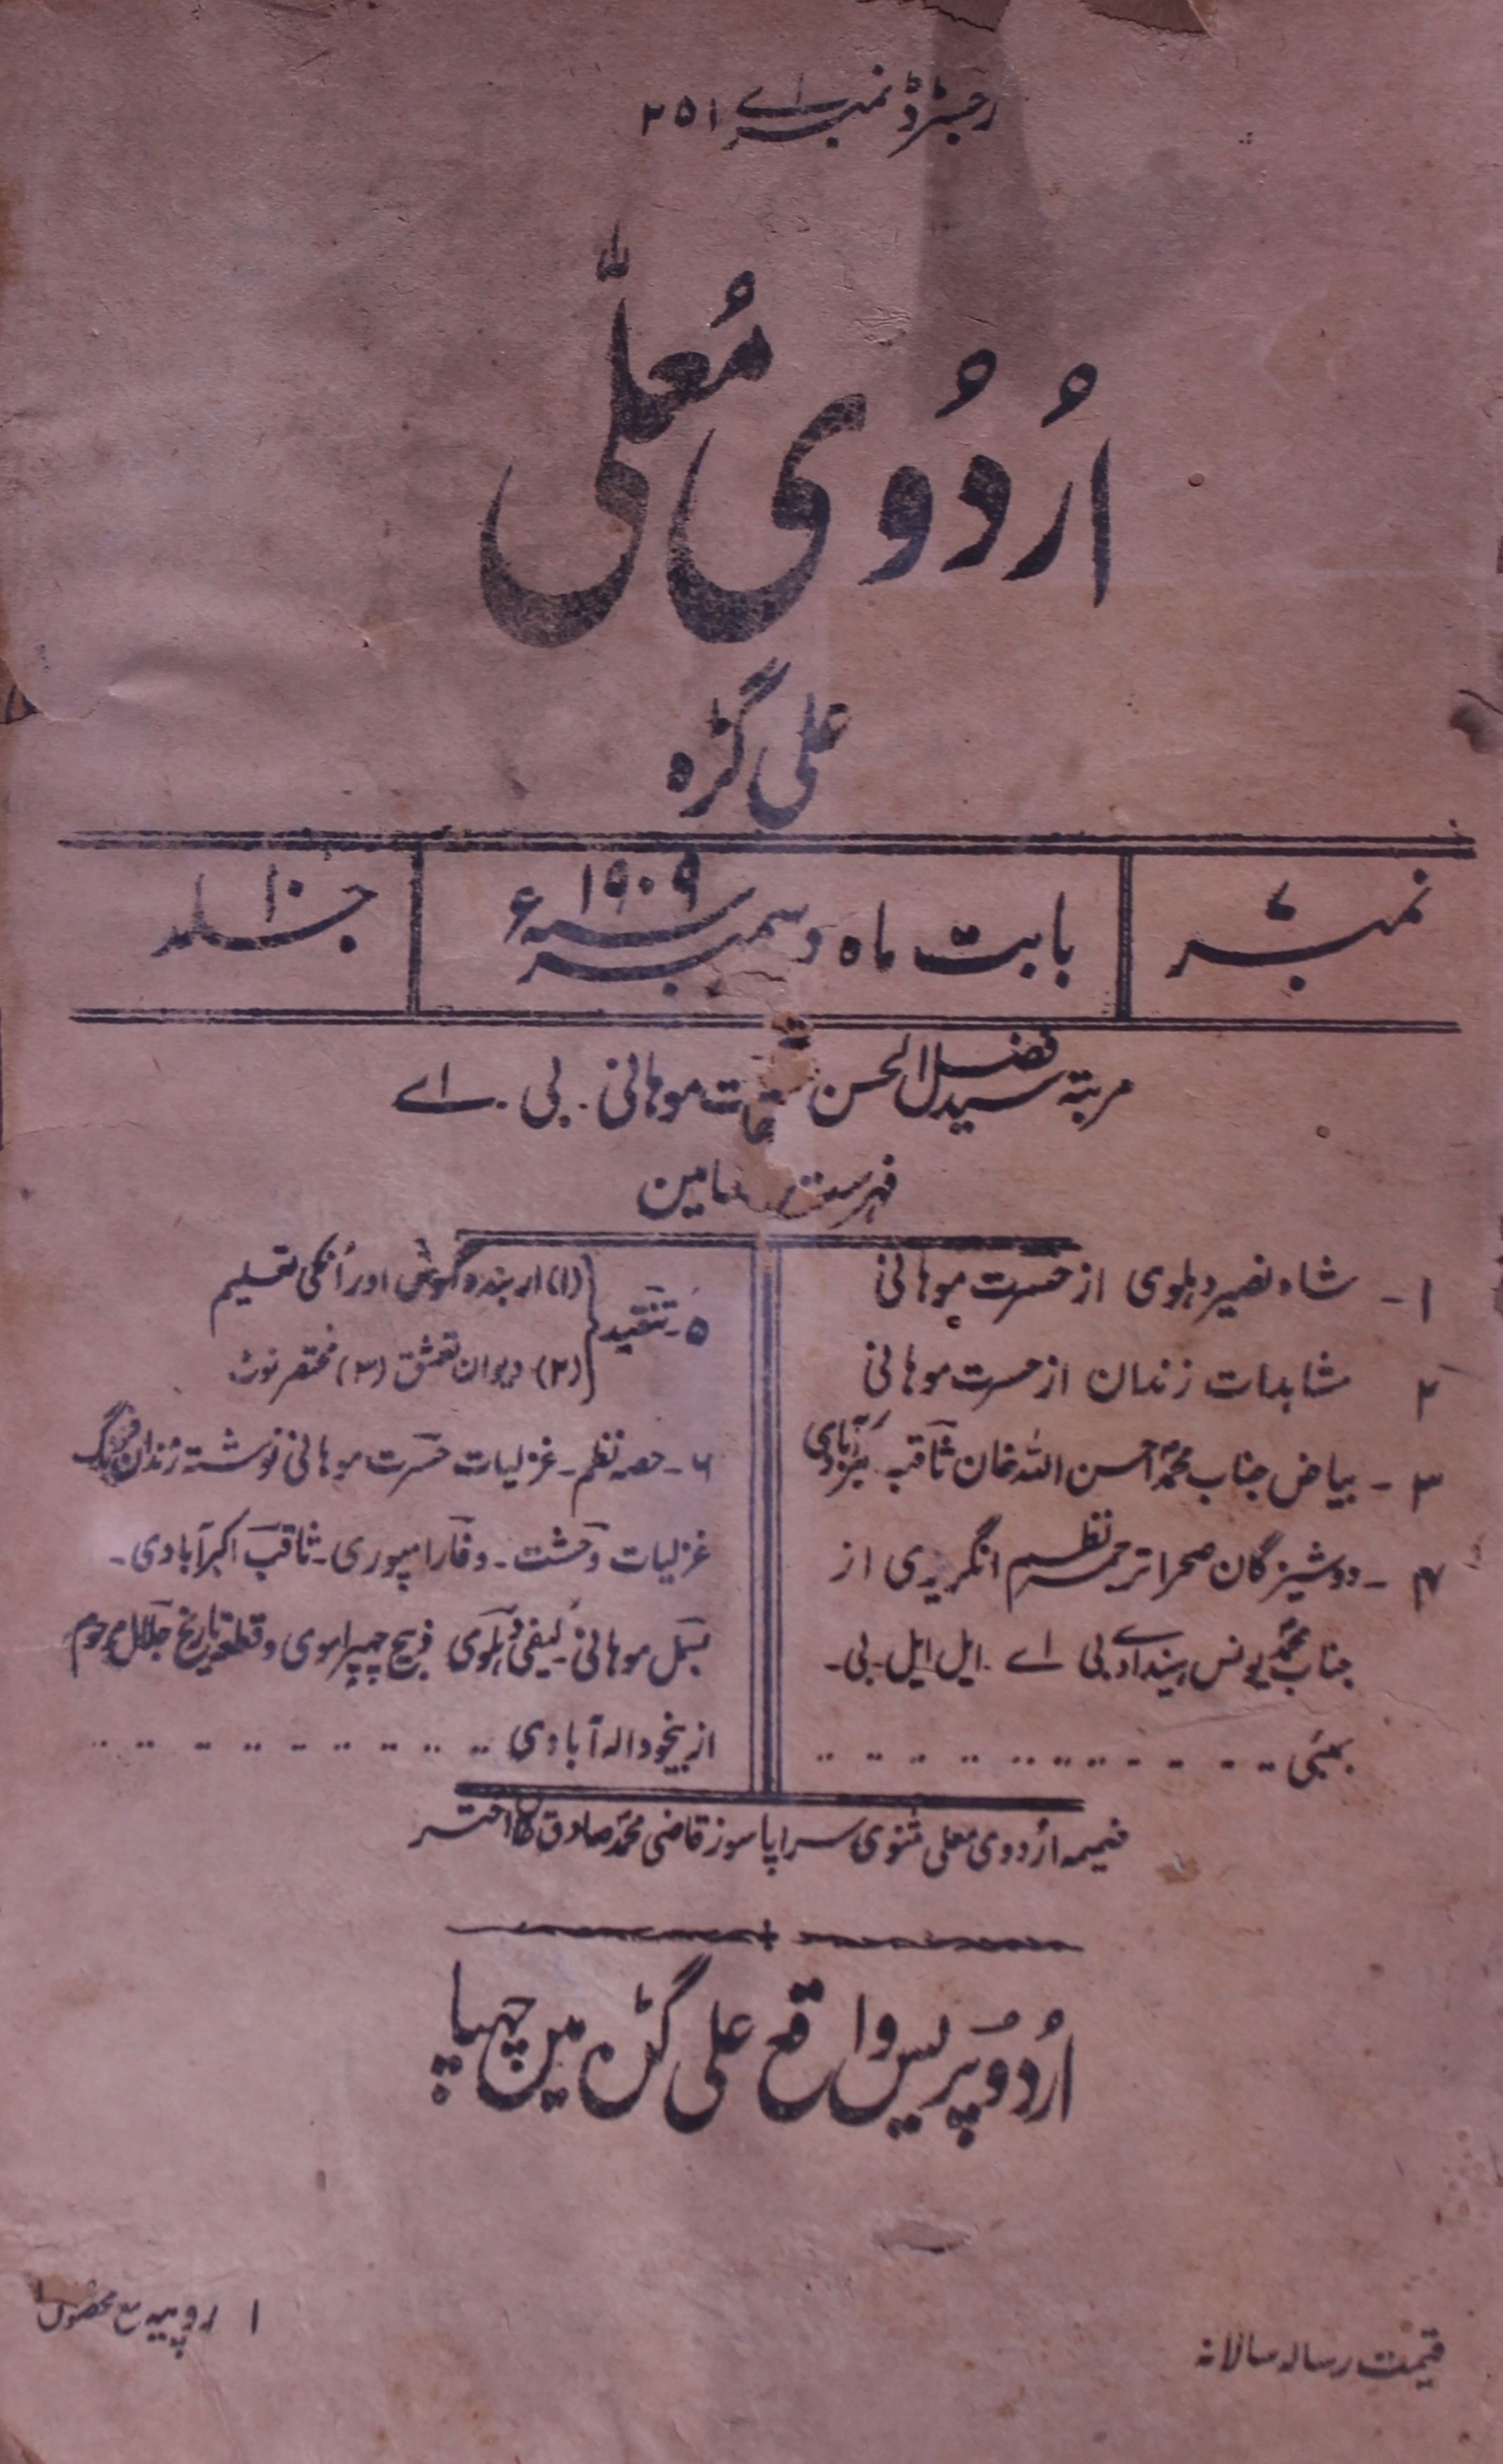 رجسٹرڈ نمبر اے ۲۵۱
اُردُوی مُعلّٰی
علی گڑہ
نمبر ۷
بابت ماہ دسمبر سنہ ۱۹۰۹ء
جلد ۱۰
مرتبۂ سید فضل الحسن موہانی . بی . اے
فہرست
۱ - شاہ نصیر دہلوی از حسرت موہانی
۲ مشاہدات زندان از حسرت موہانی
۳ - بیاض جناب محمد احسن اللہ خان ثاقب اکبرآبادی
۴ - دوشیزگان صحرا ترجمہ نظم انگریزی از
جناب محمد یونس بی اے . ایل ایل . بی -
بمبئی
۵ - تنقید
(۱) اربندو گہوش اور اُنکی تعلیم
(۲) - دیوان تعشق (۳) مختصر نوٹ
۶ - حصہ نظم - غزلیات حسرت موہانی نوشتہ زندان فرنگ
غزلیات وحشت - وفا رامپوری - ثاقب اکبرآبادی -
بسمل موہانی - کیفی دہلوی وقطعہ تاریخ جلال مرحوم
از بیخود الہ آبادی
ضمیمہ اردوی معلی مثنوی سراپا سوز قاضی محمد صادق خان اختر
اُردُو پریس واقع علی گڑہ مین چھپا
قیمت رسالہ سالانہ
۱ روپیہ مع محصول